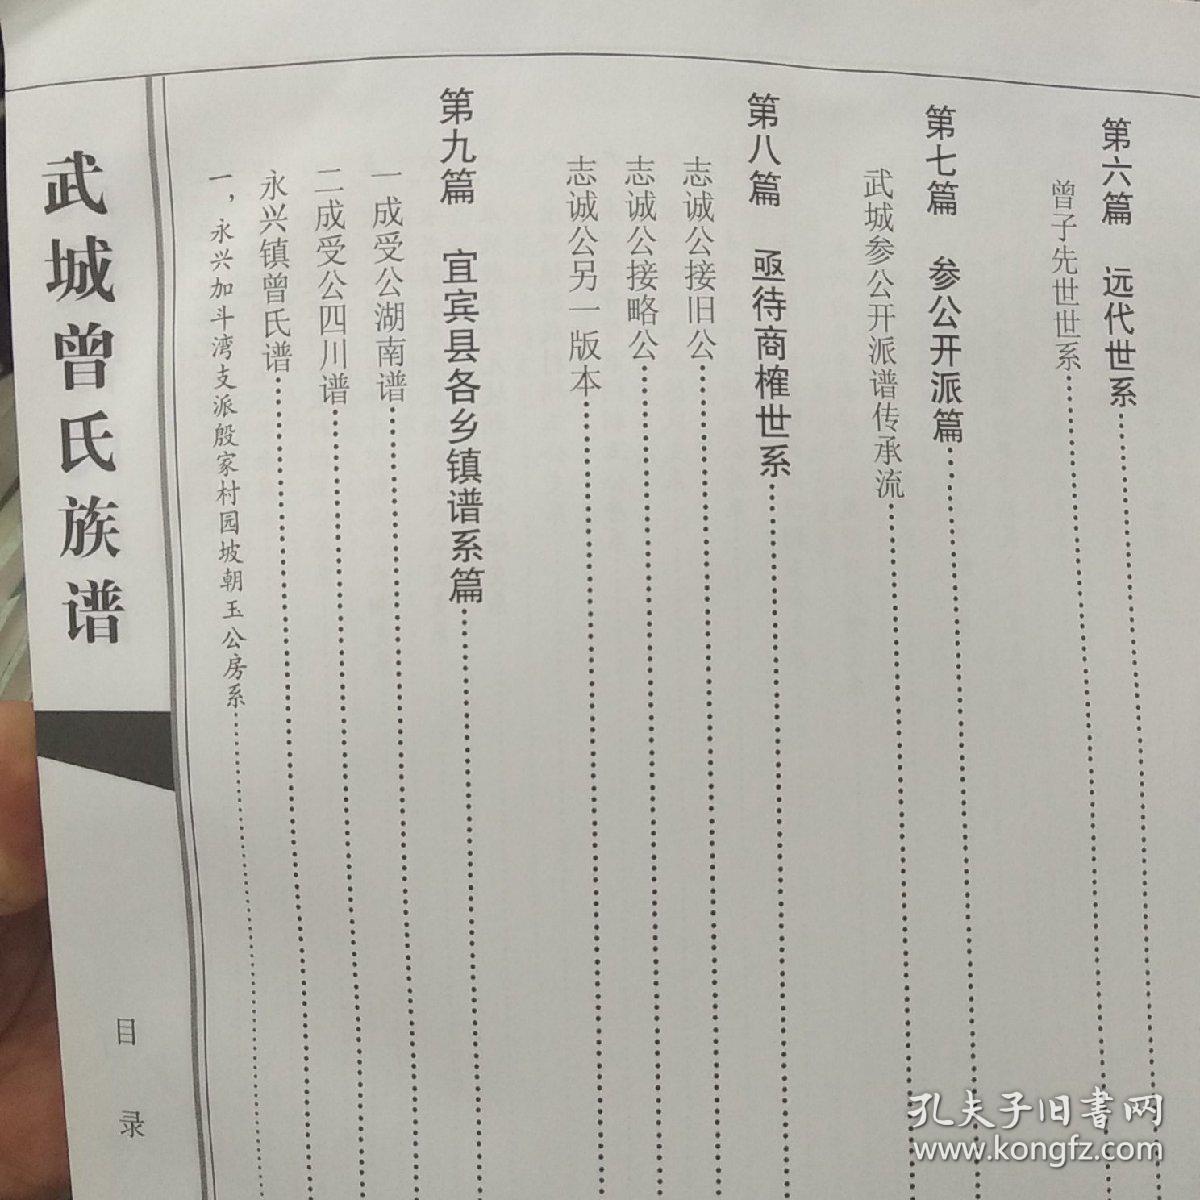 第六篇 远代世系
曾子先世世系
第七篇 参公开派篇
武城参公开派谱传承流
第八篇 亟待商榷世系
志诚公接旧公
志诚公接略公
志诚公另一版本
第九篇 宜宾县各乡镇谱系篇
一成受公湖南谱
二成受公四川谱
永兴镇曾氏谱
一，永兴加斗湾支派殷家村园坡朝玉公房系
武城曾氏族谱
目录
孔夫子旧书网
www.kongfz.com